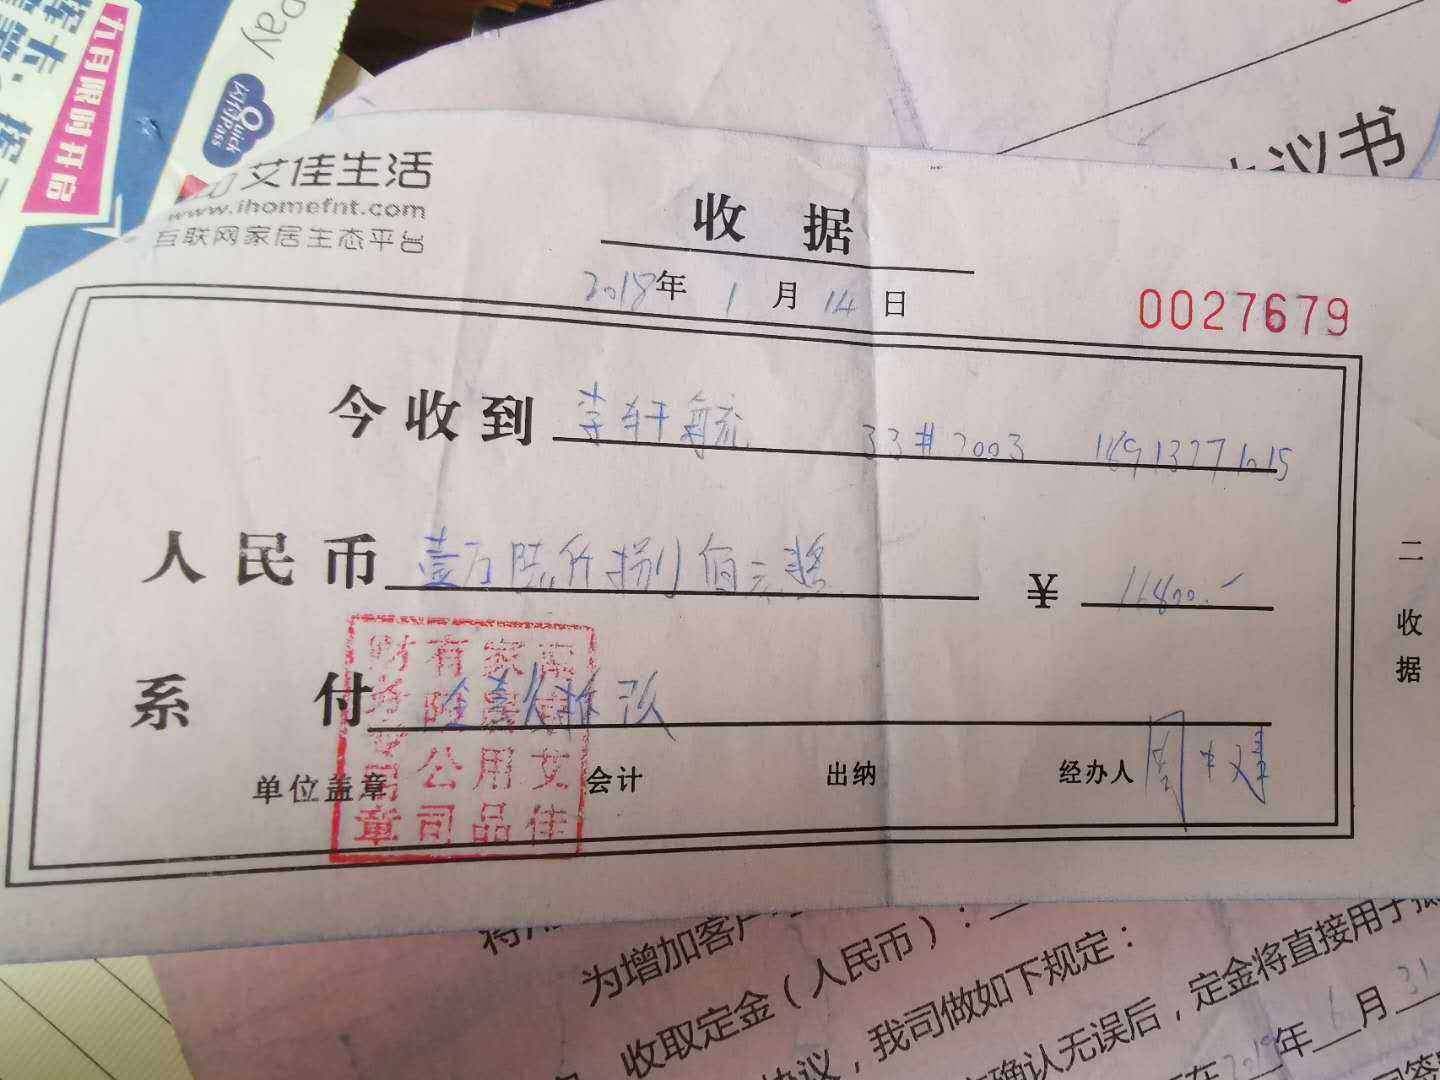 Pay
九月限时开启
闪付
Quick
Pass
艾佳生活
www.ihomefnt.com
互联网家居生态平台
收 据
2018年 1 月 14 日
0027679
今收到 李轩毓 33#2003 18913271615
人民币 壹万陆仟捌佰元整 ¥ 16800.-
系 付
单位盖章 会计 出纳 经办人
南京艾佳
家居用品
有限公司
财务专用章
二收据
议书
为增加客户
收取定金（人民币）：
协议，我司做如下规定：
确认无误后，定金将直接用于
年 6 月 31